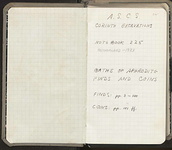 A.S.C.S
CORINTH EXCAVATIONS
NOTE BOOK 225
BATHS OF APHRODITE
FINDS AND COINS
FINDS pp. 1 —
COINS pp.